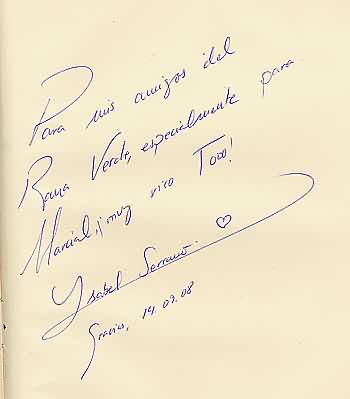 Para mis amigos del
Rana Verde, especialmente para
Marcial, ¡muy rico Todo!
Ysabel Serrano.
Gracias, 14.09.08